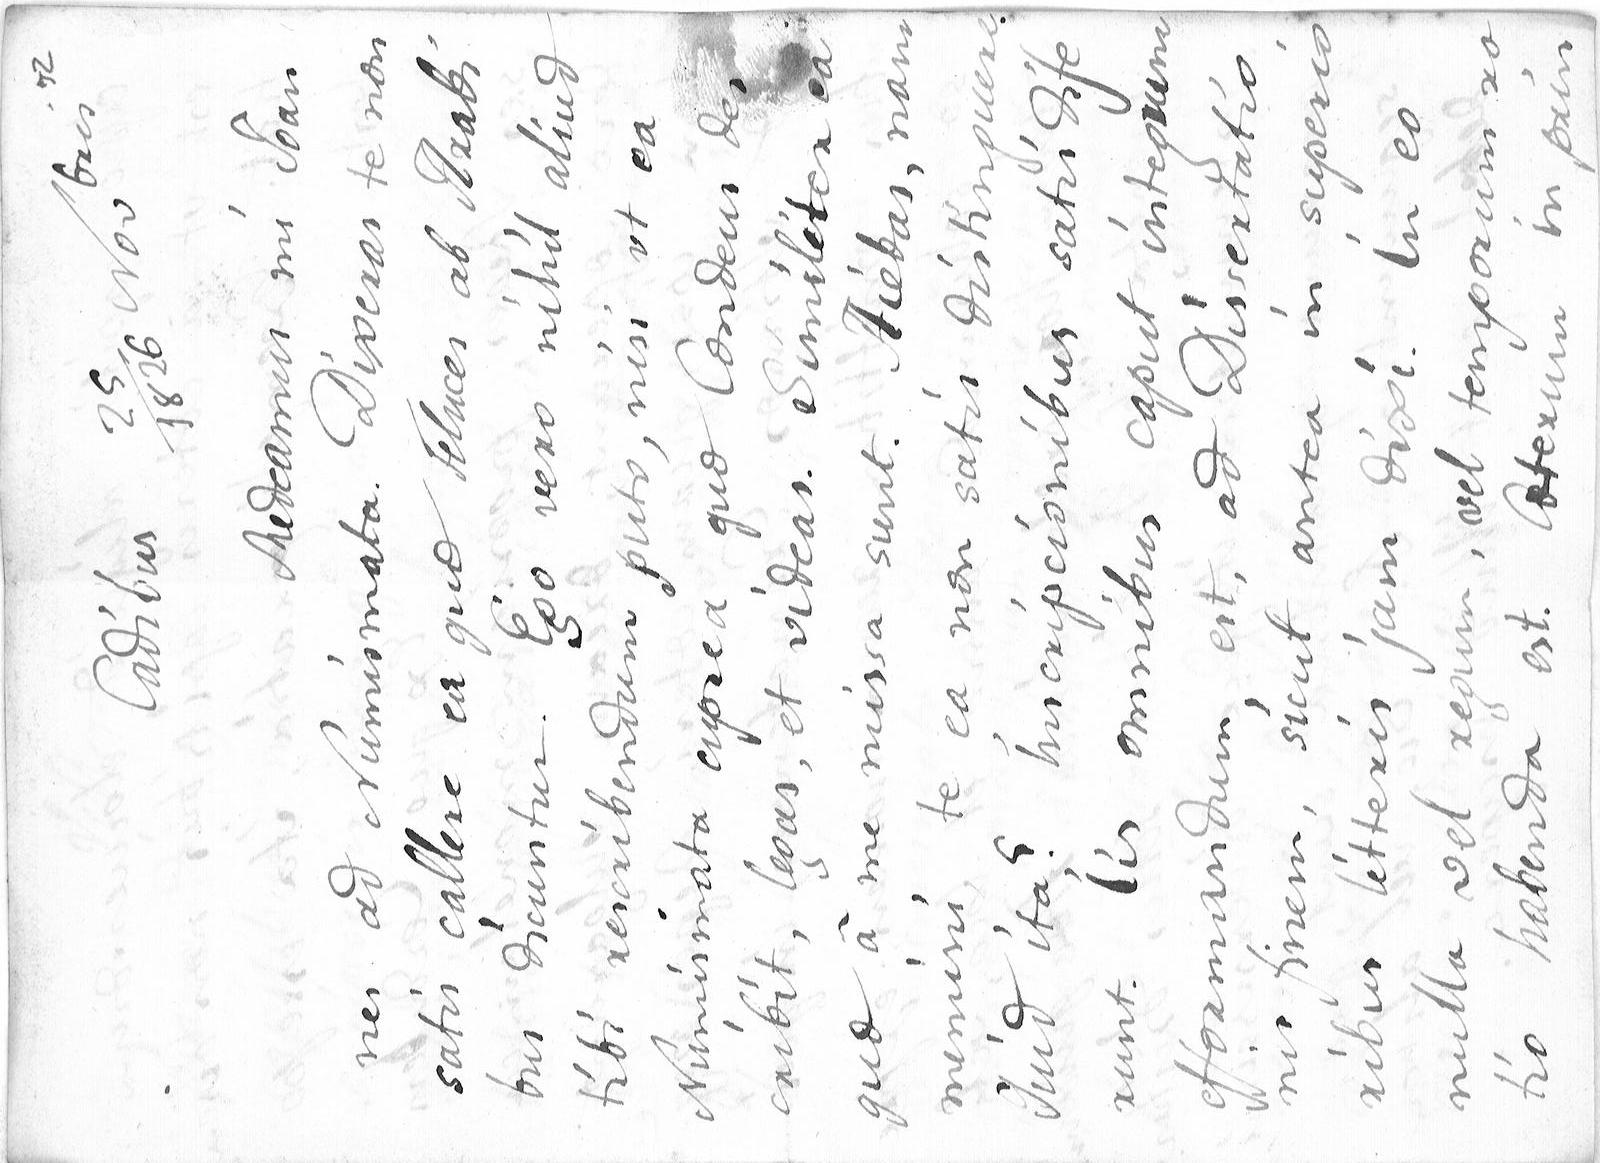 Gadibus 25 Novbris
1826
Redeamus mi Joan
nes ad Numismata. Diveras te non
satis callere ea quæ Feluces ab Arabi
bus dicuntur. Ego vero nihil aliud
tibi rescribendum puto, nisi ut ea
Numismata cuprea quæ Condeus des
cribit, legas, et videas. Similiter ea
quæ à me missa sunt. Aiebas, nam
memini, te ea non satis distinguere.
Quid ita? Inscripcionibus satis dife
runt. Iis omnibus caput integrum
efformandum est, ad Dissertatio
nis finem, sicut antea in superio
ribus litteris jam dixi. In eo
nulla vel regum, vel temporum ra
tio habenda est. Cæterum in prin